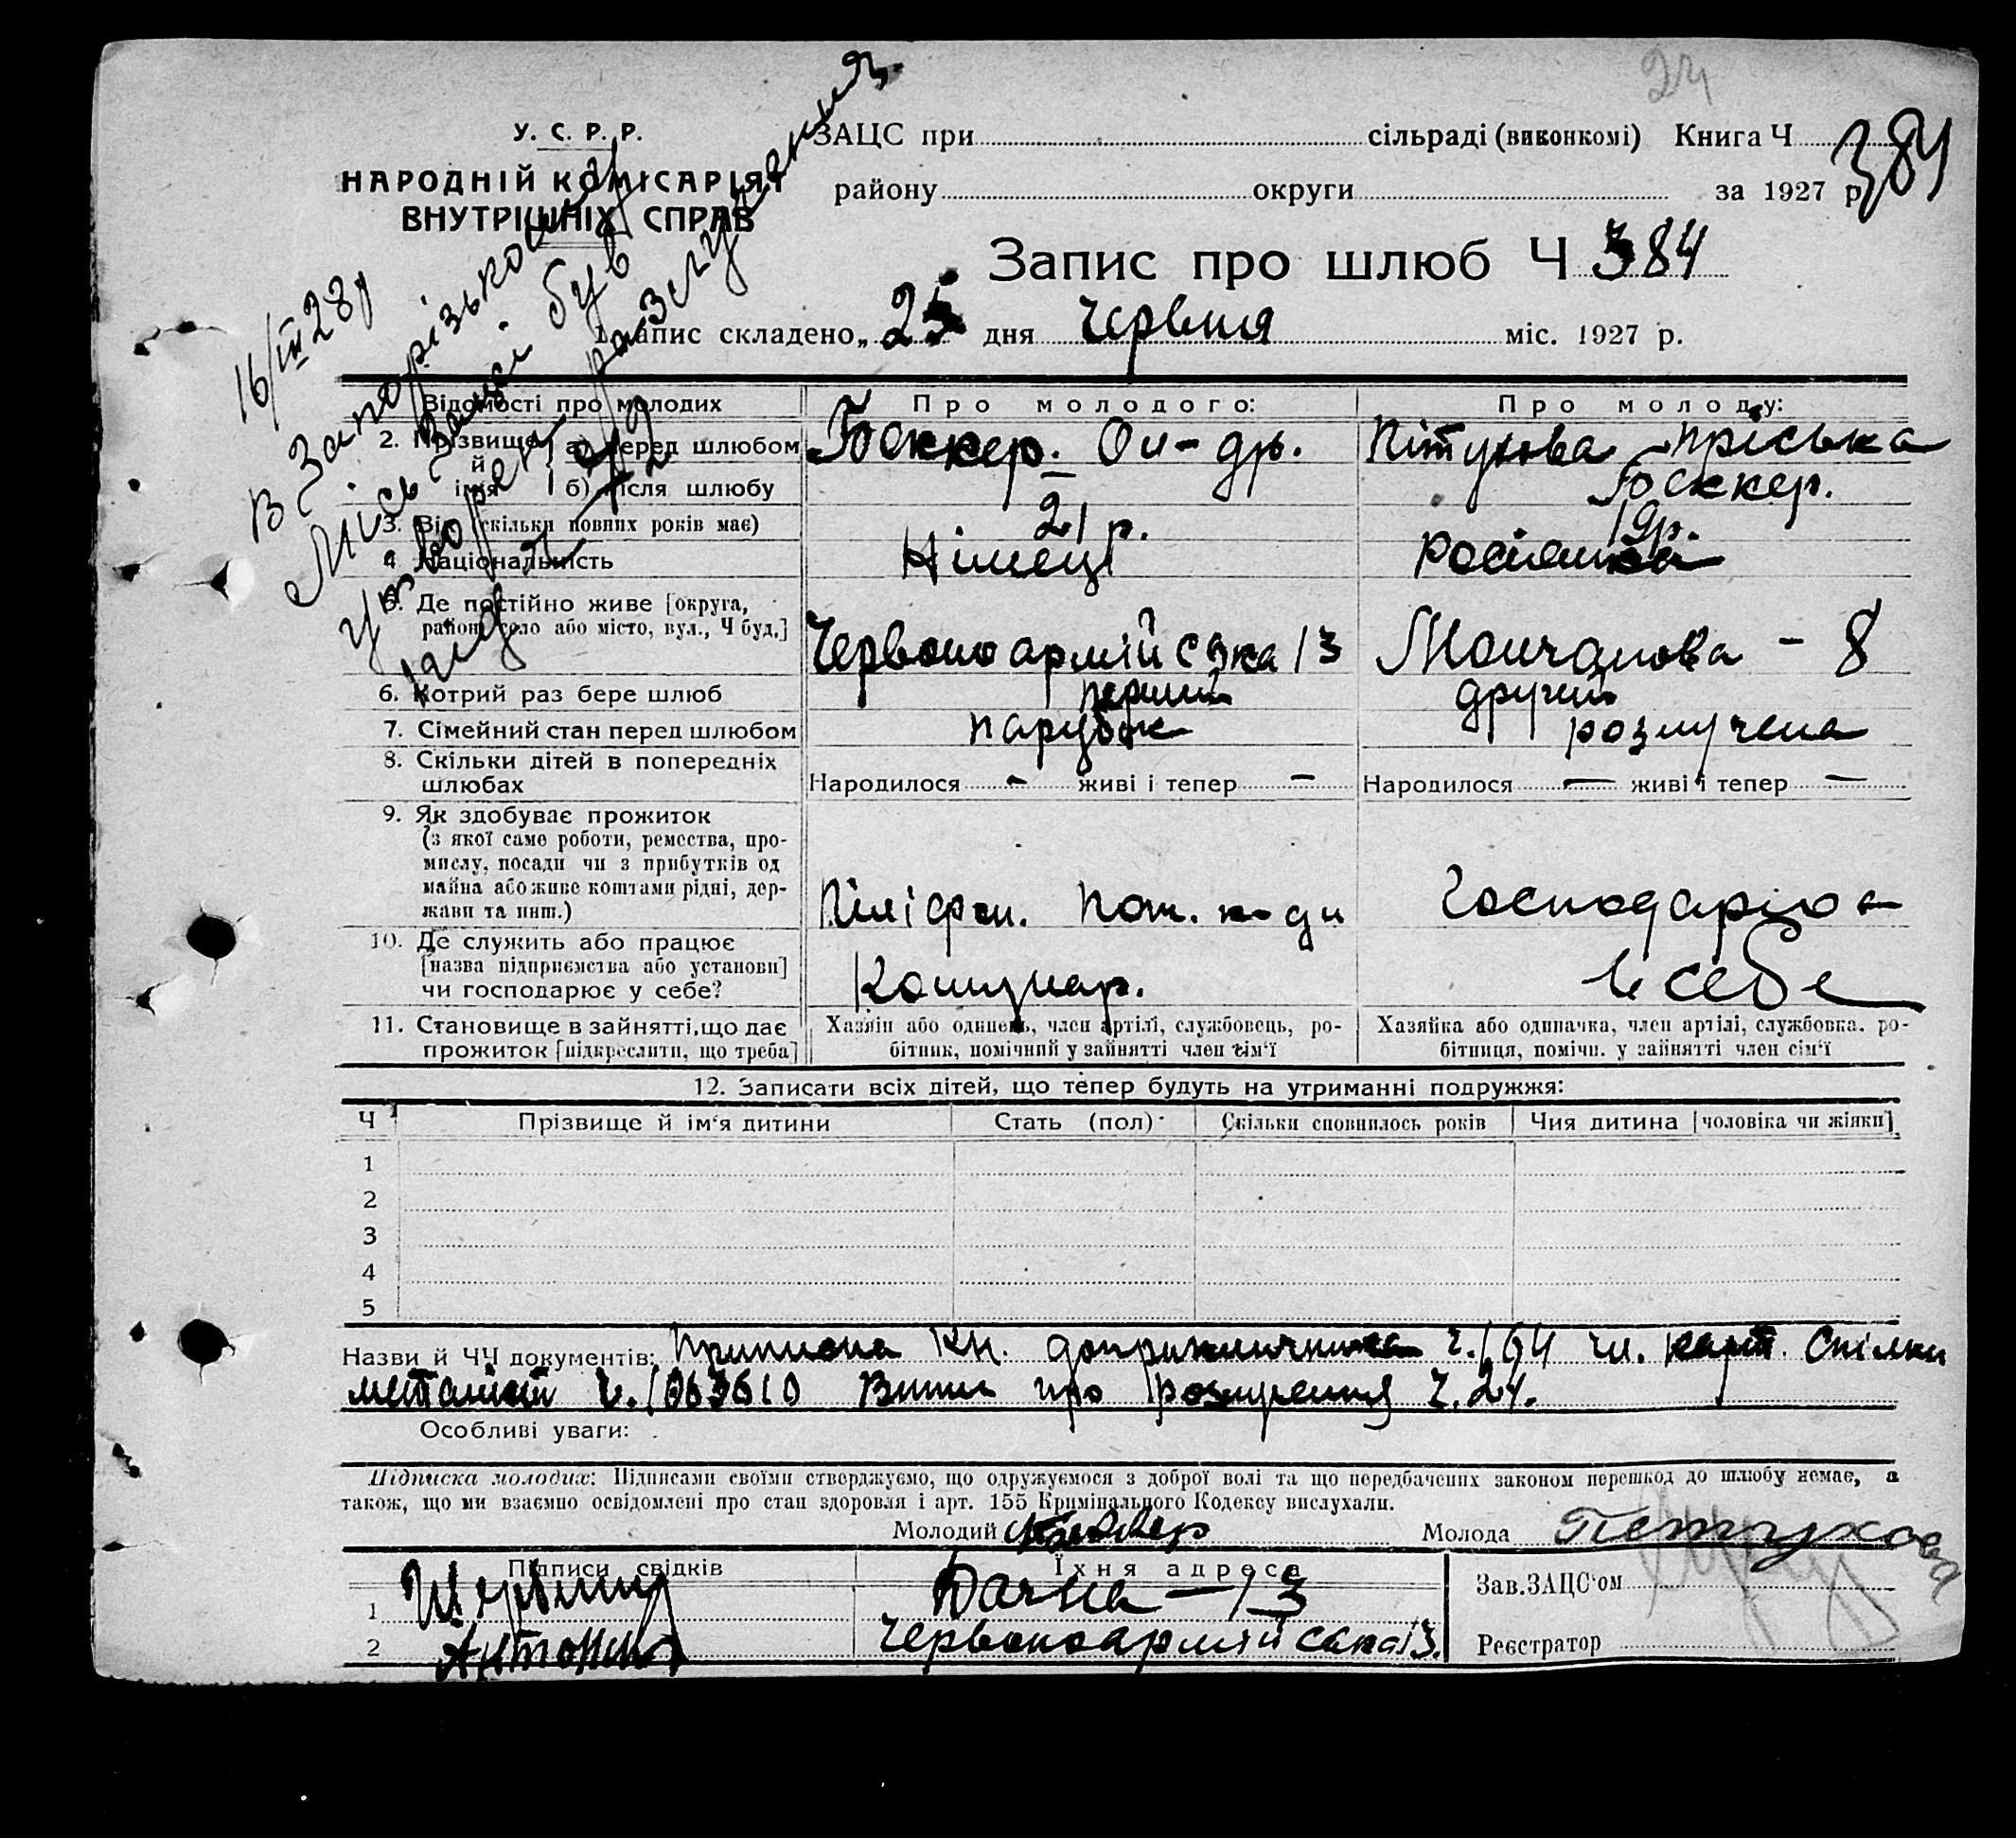 24
У. С. Р. Р.
НАРОДНІЙ КОМІСАРІЯТ
ВНУТРІШНІХ СПРАВ
ЗАЦС при сільраді (виконкомі) Книга Ч
384
району округи за 1927 р
Запис про шлюб Ч 384
1. Запис складено „ 25 дня червня міс. 1927 р.
16/IX 28 р
В Запорізькому
Міськ Зацсі був
утворен розлучення
Відомості про молодих
Про молодого:
Про молоду:
2. Прізвище й ім'я а) перед шлюбом
Беккер. Ол-др.
Пітухова Пріська
б) після шлюбу
Беккер.
3. Вік (скільки повних років має)
21 р.
19р.
4 Національність
Німець
Росіянка
5. Де постійно живе [округа,
район, село або місто, вул., Ч буд.]
Червоноармійська 13
Мончанова - 8
6. Котрий раз бере шлюб
перший
другий
7. Сімейний стан перед шлюбом
парубок
розлучена
8. Скільки дітей в попередніх
шлюбах
Народилося - живі і тепер -
Народилося - живі і тепер -
9. Як здобуває прожиток
(з якої саме роботи, ремества, про-
мислу, посади чи з прибутків од
майна або живе коштами рідні, дер-
жави та инш.)
Господарює
10. Де служить або працює
[назва підприємства або установи]
чи господарює у себе?
Комунар.
в себе
11. Становище в зайнятті, що дає
прожиток [підкреслити, що треба]
Хазяїн або одинець, член артілі, службовець, ро-
бітник, помічний у зайнятті член сім'ї
Хазяйка або одиначка, член артілі, службовка. ро-
бітниця, помічн. у зайнятті член сім'ї
12. Записати всіх дітей, що тепер будуть на утриманні подружжя:
Ч
Прізвище й ім'я дитини
Стать (пол)
Скільки сповнилось років
Чия дитина [чоловіка чи жінки]
1
2
3
4
5
Назви й ЧЧ документів: Приписна Кн. допризивника ч. 164 чл. карт. Спілки
металіст ч. 1063610 Витяг про розлучення ч. 24.
Особливі уваги:
Підписка молодих: Підписами своїми стверджуємо, що одружуємося з доброї волі та що передбачених законом перешкод до шлюбу немає, а
також, що ми взаємно освідомлені про стан здоровля і арт. 155 Кримінального Кодексу вислухали.
Молодий Беккер
Молода Петухова
Підписи свідків
Їхня адреса
Зав.ЗАЦС'ом
1
Дачна - 13
2
Червоноармійська 13.
Реєстратор